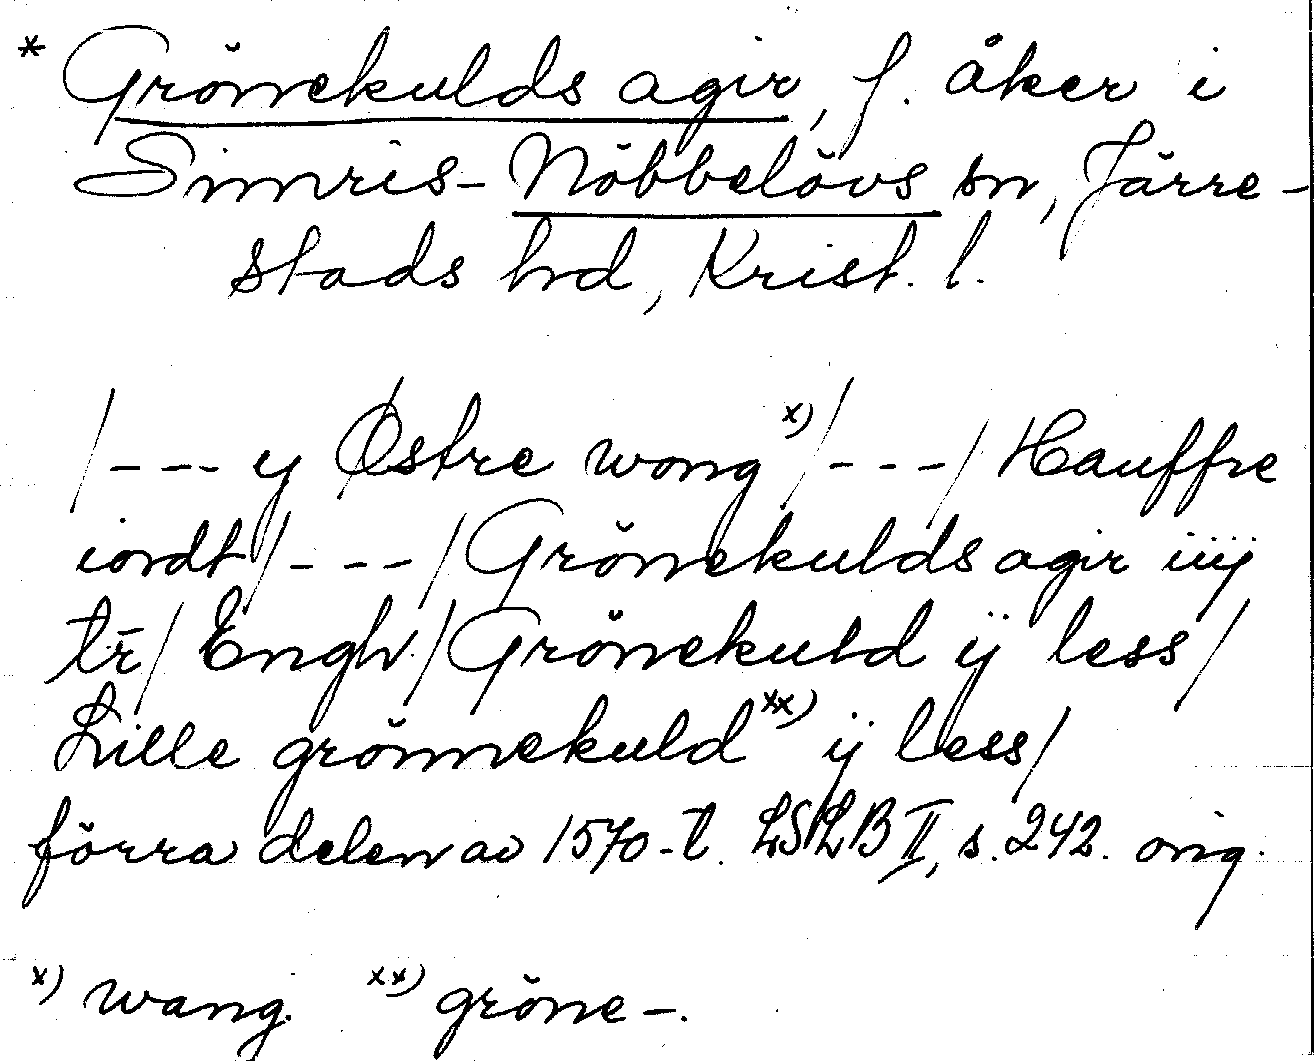 * Grönekulds agir, f. åker i
Simris-Nöbbelövs sn, Järre-
stads hd, Krist. l.
/--- y Østre wong x)/---/ Hauffre
iordt/---/Grönekulds agir iiij
tr̄/ Engh/Grönekuld ij less/
Lille grönnekuld xx) ij less/
förra delen av 1570-t. LSLB II, s. 242. orig.
x) wang. xx) gröne-.